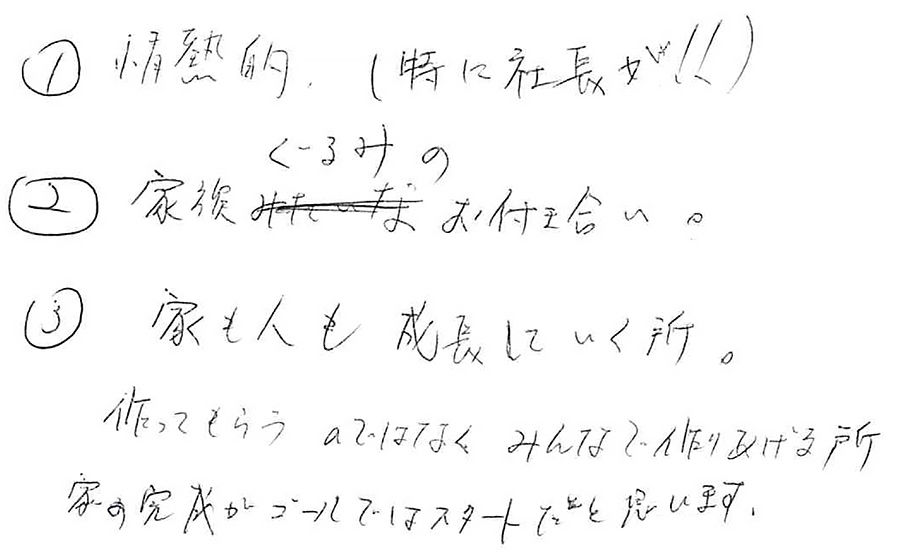 ① 情熱的.(特に社長が!!)
ぐるみの
② 家族みたいなお付き合い。
③ 家も人も成長していく所。
作ってもらうのではなく みんなで作りあげる所
家の完成がゴールではスタートだと思います.